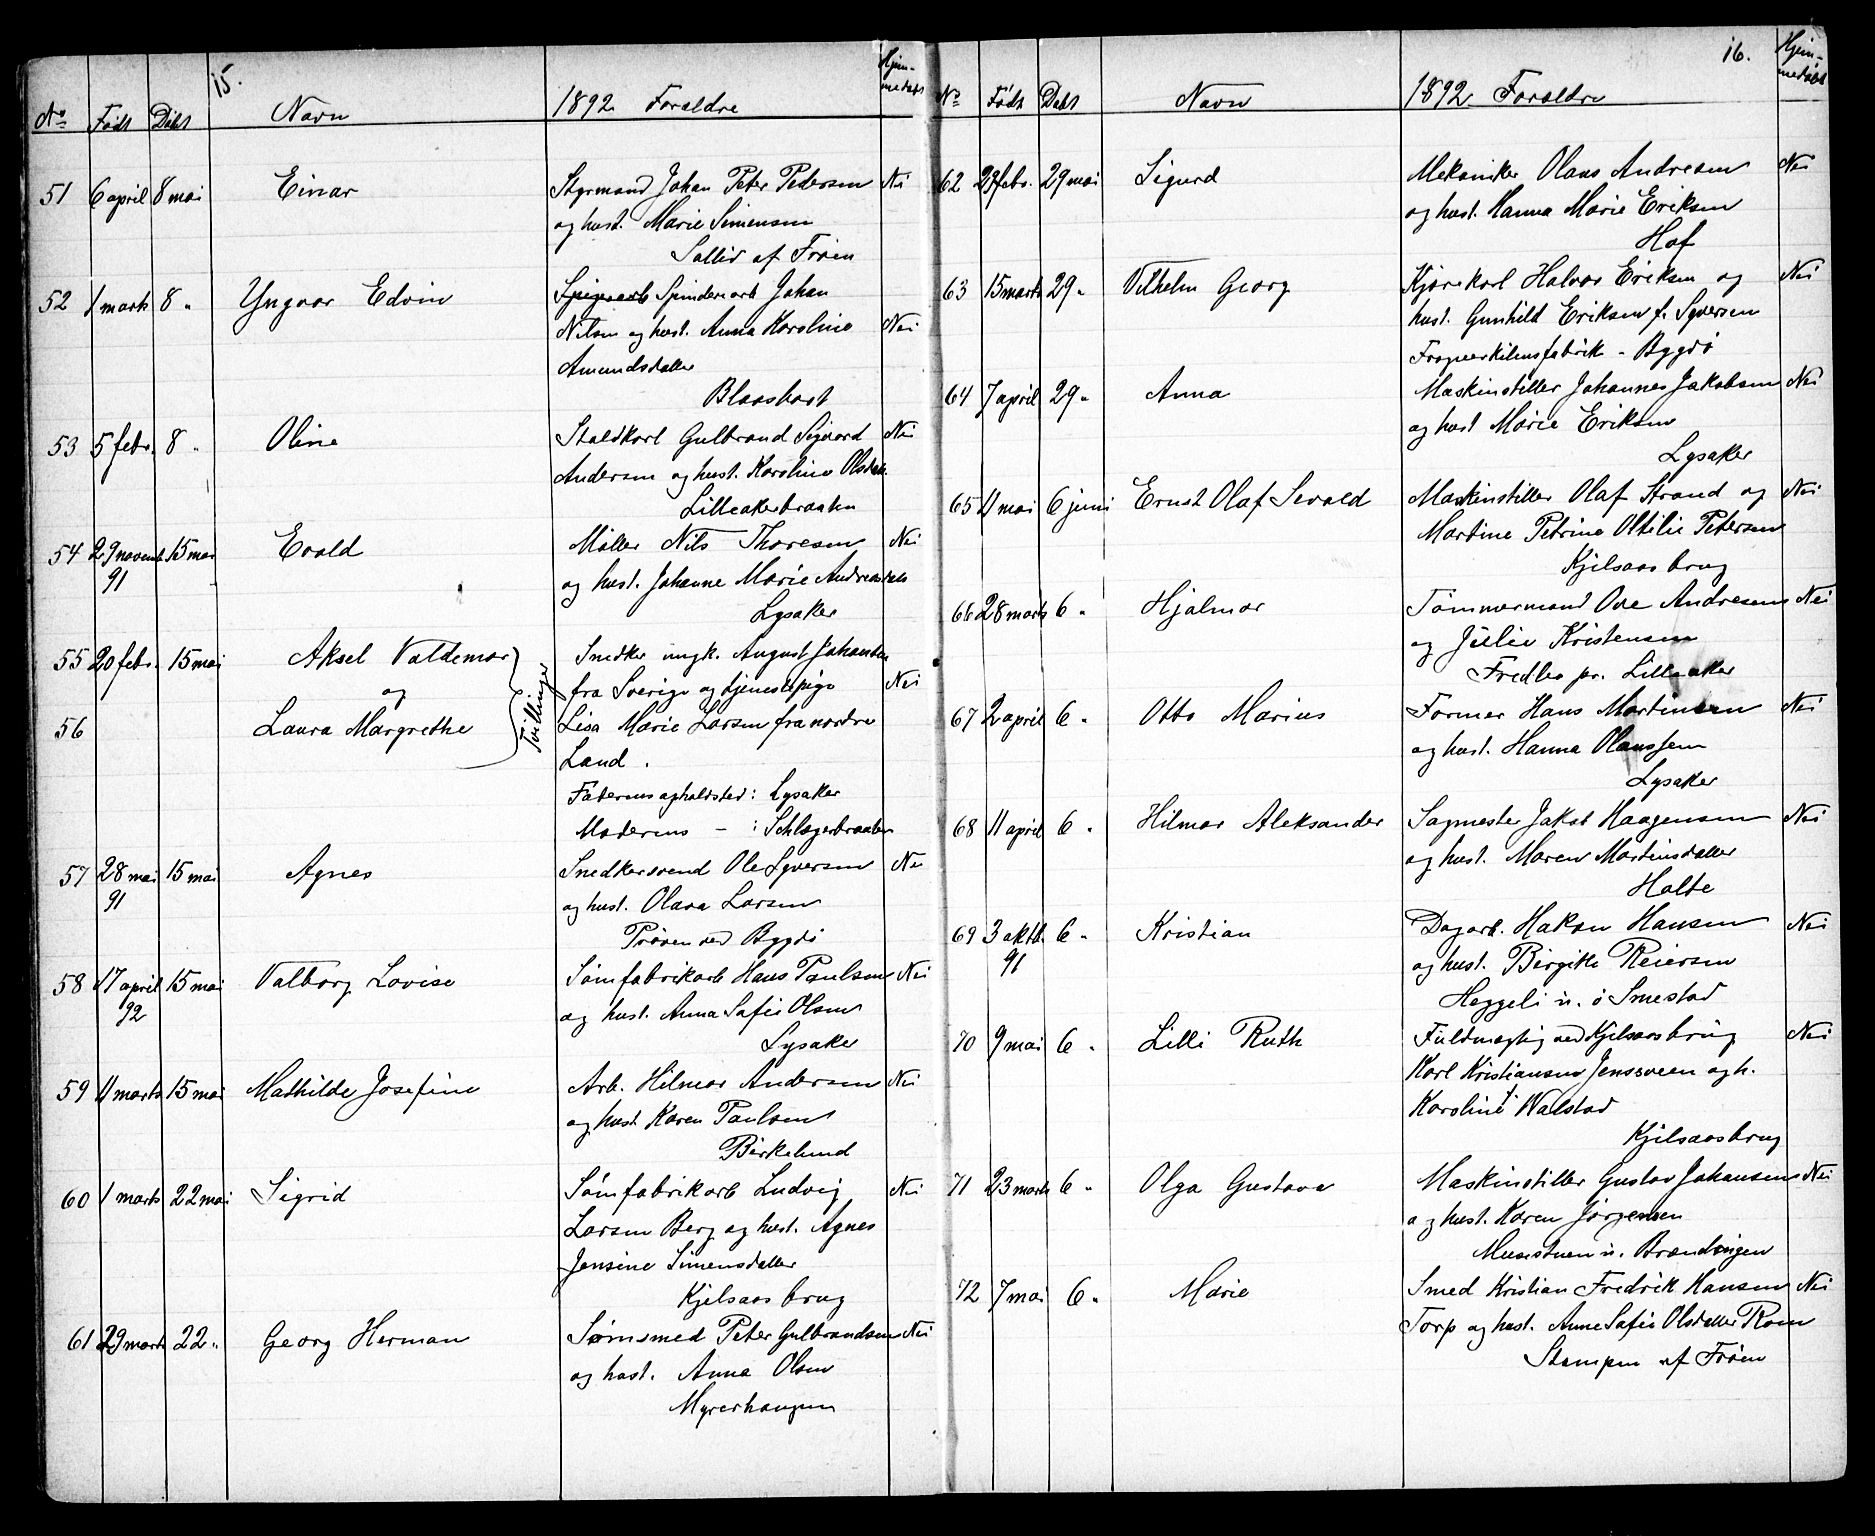 15.
No Født Døbt Navn 1892 Forældre Hjemmedøbt
51 6 april 8 mai Einar Styrmand Johan Peter Pedersen Nei
og hust. Marie Simensen
af Frøen
52 1 marts 8 " Yngvar Edvin Spigerarb Spinderiarb Johan
Nilsen og hust. Anna Karoline Nei
Amundsdatter
53 5 febr. 8 " Oline Staldkarl Gulbrand Sigvard Nei
Andersen og hust. Karoline Olsdatt.
Lilleakerbraaten
54 29 novemb 15 mai Evald Møller Nils Thoresen Nei
91 og hust. Johanne Marie Andreasdatt
Lysaker
55 20 febr. 15 mai Aksel Valdemar Snedker ungk. August Johansen
og Tvillinger fra Sverige og tjenestepige Nei
56 Laura Margrethe Lisa Marie Larsen fra nordre
Land.
Faderens opholdsted: Lysaker
Moderens — : Schlagerbraaten
57 28 mai 15 mai Agnes Snedkersvend Ole Syversen Nei
91 og hust. Olava Larsen
Prøven ved Bygdø
58 17 april 15 mai Valborg Lovise Sømfabrikarb Hans Paulsen Nei
92 og hust. Anna Sofie Olsen
Lysaker
59 11 marts 15 mai Mathilde Josefine Arb. Hilmar Andersen Nei
og hust Karen Paulsen
Birkelund
60 1 marts 22 mai Sigrid Sømfabrikarb Ludvig Nei
Larsen Berg og hust. Agnes
Jensine Simensdatter
Kjelsaas brug
61 29 marts 22 " Georg Herman Sømsmed Peter Gulbrandsen Nei
og hust. Anna Olsen
Myrerhaugen
16.
No Født Døbt Navn 1892 Forældre Hjemmedøbt
62 27 febr. 29 mai Sigurd Mekaniker Olaus Andresen Nei
og hust. Hanna Marie Eriksen
Hof
63 15 marts 29 " Vilhelm Georg Kjørekarl Halvor Eriksen og Nei
hust. Gunhild Eriksen f. Syversen
Frognerkilensfabrik - Bygdø
64 7 april 29 " Anna Maskinstiller Johannes Jakobsen Nei
og hust Marie Eriksen
Lysaker
65 11 mai 6 juni Ernst Olaf Sevald Maskinstiller Olaf Strand og Nei
Martine Petrine Ottilie Petersen
Kjelsaas brug
66 28 marts 6 " Hjalmar Tømmermand Ove Andresen Nei
og Julie Kristensen
Fredbo pr. Lilleaker
67 2 april 6 " Otto Marius Former Hans Martinsen Nei
og hust. Hanna Olaussen
Lysaker
68 11 april 6 " Hilmar Aleksander Sagmester Jakob Haagensen Nei
og hust. Maren Martinsdatter
Holte
69 3 oktb. 6 " Kristian Dagarb. Hakon Hansen Nei
91 og hust. Birgitte Reiersen
Heggeli u. ø Smestad
70 9 mai 6 " Lilli Ruth Fuldmægtig ved Kjelsaas brug Nei
Karl Kristiansen Jenssveen og h.
Karoline f. Walstad
Kjelsaas brug
71 23 marts 6 " Olga Gustava Maskinstiller Gustav Johansen Nei
og hust. Karen Jørgensen
u. Brændengen
72 7 mai 6 " Marie Smed Kristian Fredrik Hansen Nei
Torp og hust. Anne Sofie Olsdatter Roen
Stampen af Frøen